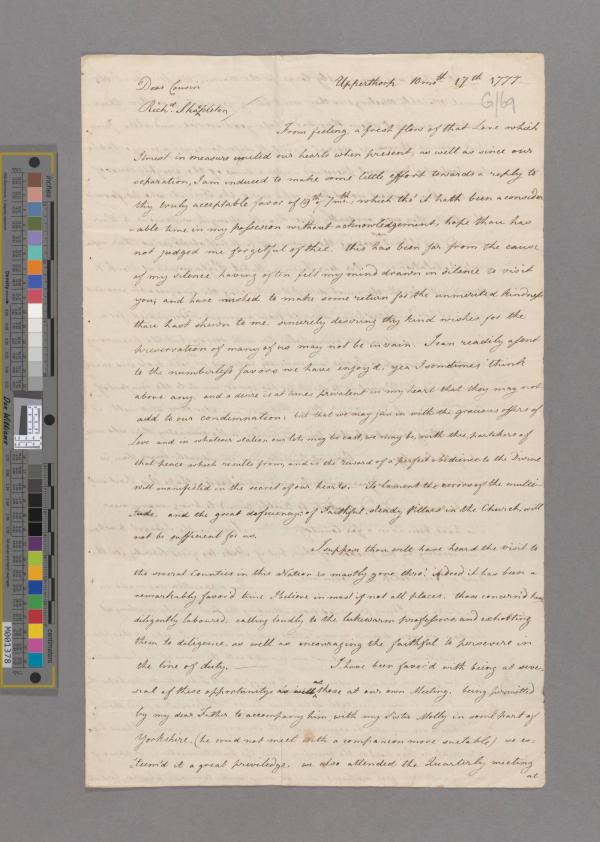 Dear Cousin
Upperthorp 10 moth 17th 1777
Richd. Shackleton
G/69
From feeling a fresh flow of that Love which
I trust in measure united our hearts when present, as well as since our
separation, I am induced to make some little effort towards a reply to
thy truly acceptable favor of 19th, 7 mth:, which tho' it hath been a consider
able time in my possession without acknowledgement, hope thou has
not judged me forgetful of thee. this has been far from the cause
of my silence having often felt my mind drawn in silence to visit
you; and have wished to make some return for the unmerited kindness
thou hast shewn to me. sincerely desiring thy kind wishes for the
preservation of many of us may not be in vain. I can readily assent
to the numberless favors we have enjoy'd, yea I sometimes think
above any. and a desire is at times prevalent in my heart that they may not
add to our condemnation; but that we may join in with the gracious offers of
Love and in whatever station our lots may be cast, we may be, with thee partakers of
that peace which results from, and is the reward of a perfect obedience to the Divine
will manifested in the secret of our hearts. To lament the errors of the multi
tude, and the great deficiency of Faithful, steady Pillars in the Church, will
not be sufficient for us.
I suppose thou will have heard the visit to
the several Counties in this Nation is mostly gone thro'. indeed it has been a
remarkably favor'd time I believe in most if not all places. those concern'd have
diligently laboured, calling loudly to the lukewarm professors, and exhorting
them to diligence, as well as encouraging the faithful to persevere in
the line of duty.
I have been favor'd with being at seve
ral of these opportunitys as well as those at our own Meeting. being permitted
by my dear Father to accompany him with my Sister Molly in some part of
Yorkshire, (he could not meet with a companion more suitable) we es-
teem'd it a great priviledge. we also attended the Quarterly meeting
at
inches
Density
Don Williams
centimeters
M001378